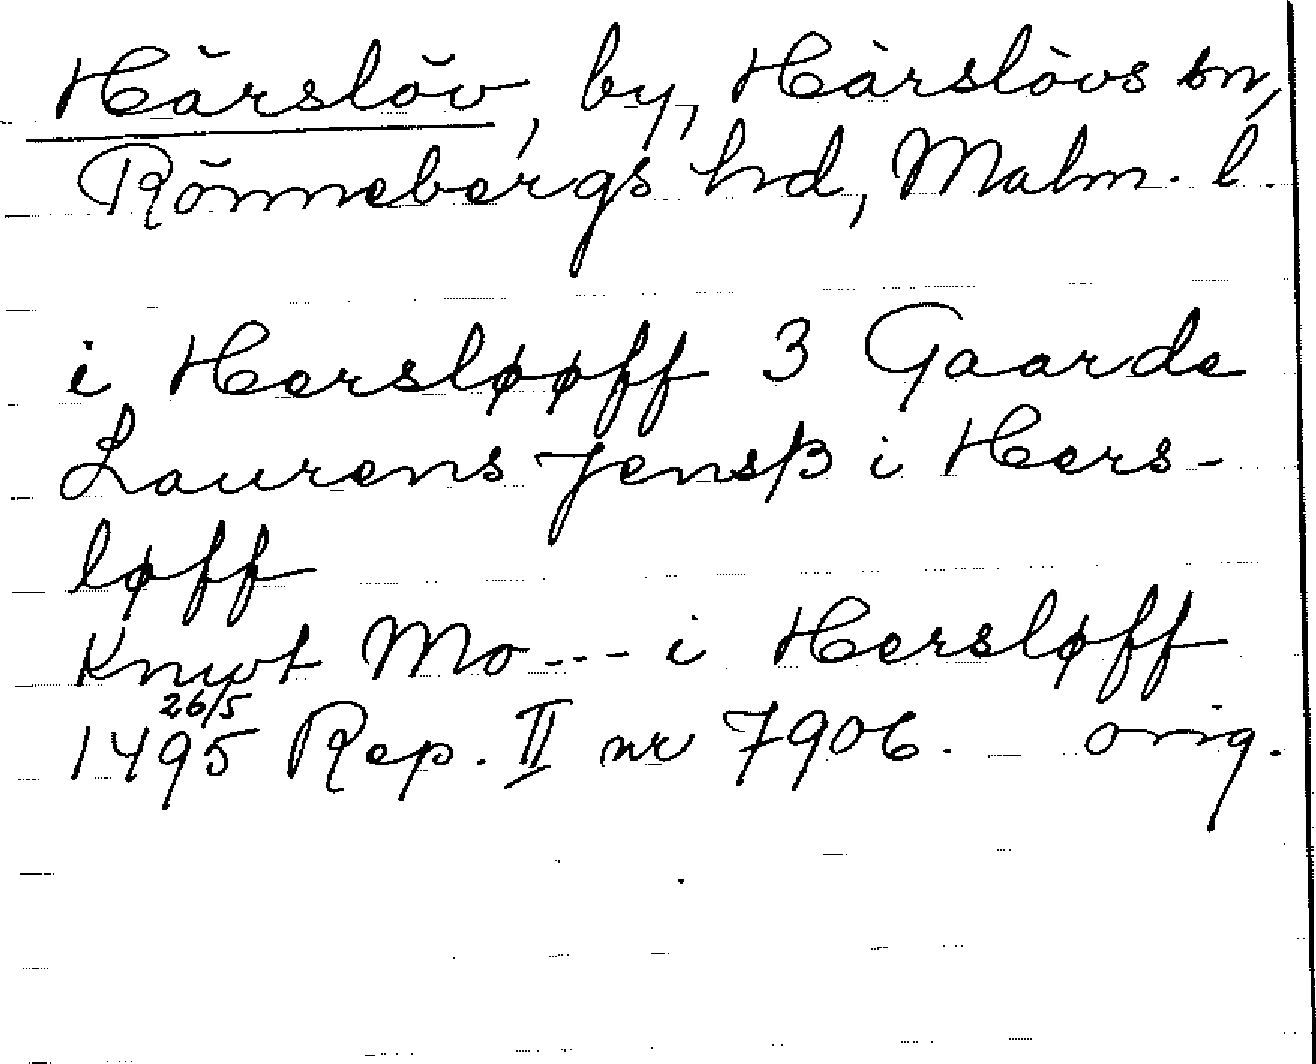 Härslöv, by, Härslövs sn,
Rönnebergs hd, Malm. l.
i Hersløøff 3 Gaarde
Laurens Jensß i Hers-
løff
Knwt Mo--- i Hersløff
26/5
1495 Rep. II nr 7906. orig.